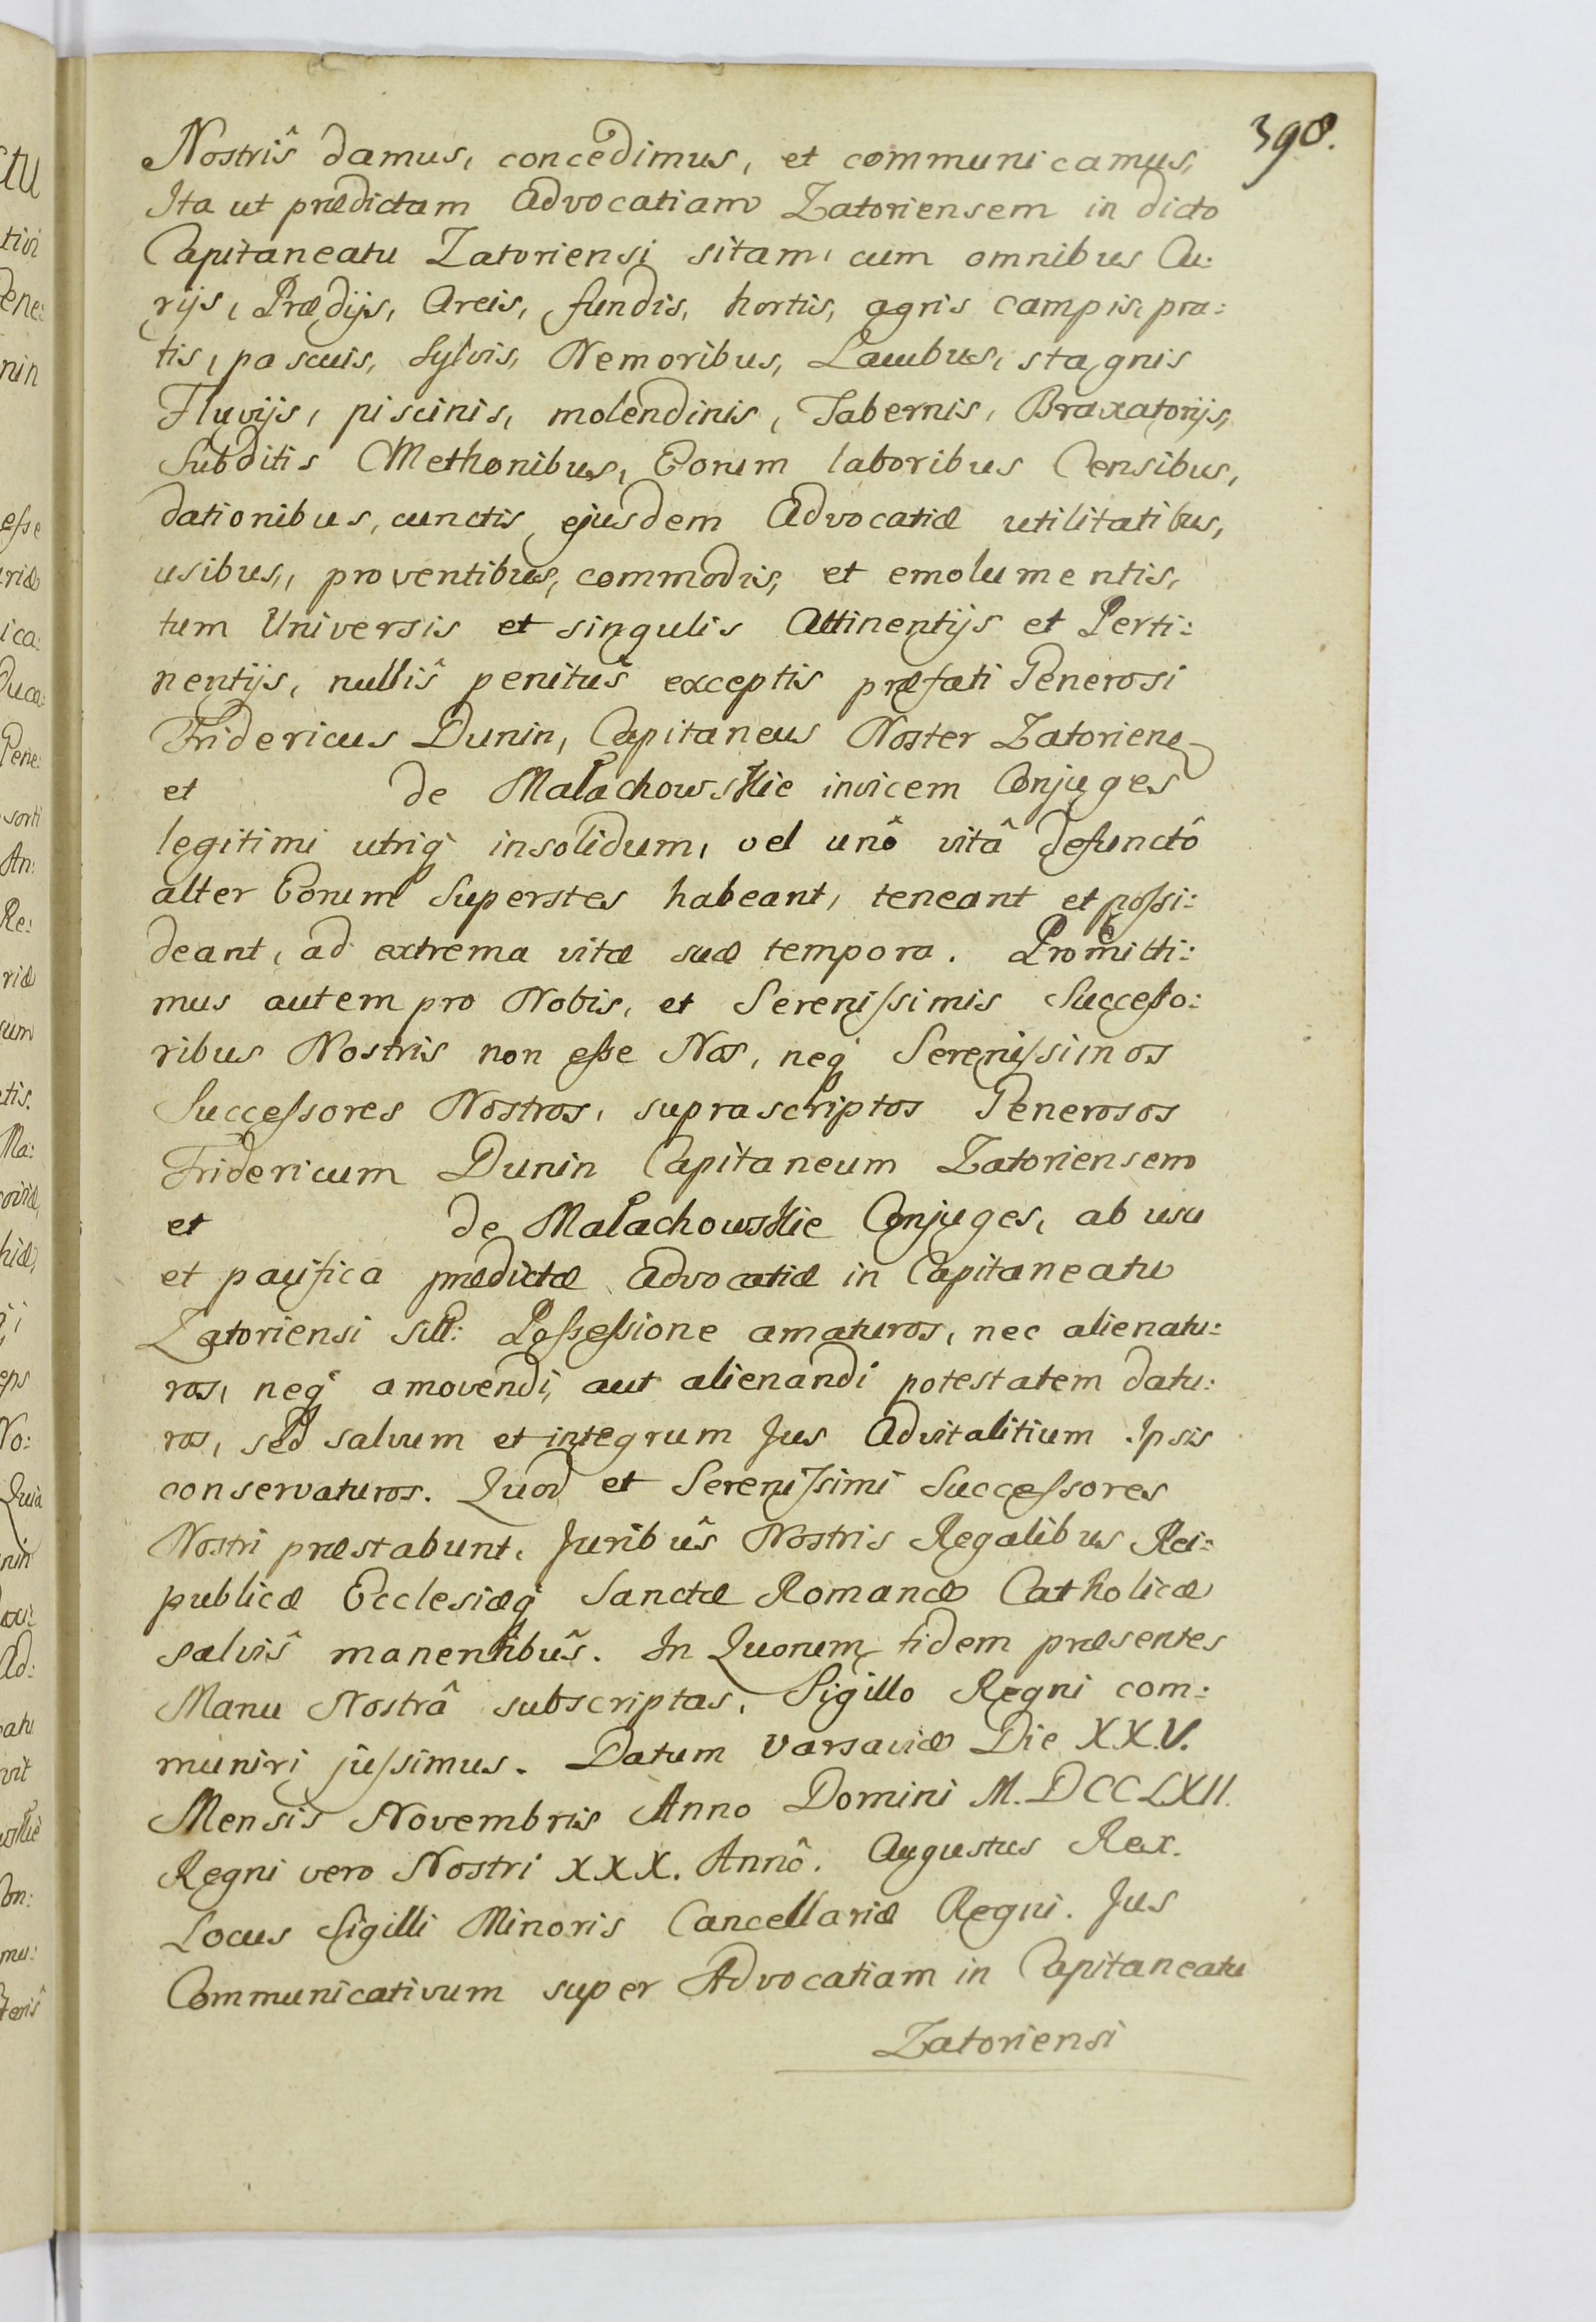 398.
Nostrîs damus, concedimus, et communicamus,
Ita ut prædictam Advocatiam Zatoriensem in dicto
Capitaneatu Zatoriensi sitam, cum omnibus Cu:
rijs, Prædijs, Areis, fundis, hortis, agris campis, pra:
tis, pascuis, Sylvis, Nemoribus, Lacubus, stagnis
Fluvijs, piscinis, molendinis, Tabernis, Braxatorijs,
Subditis Cmethonibus, Eorum laboribus Censibus,
dationibus, cunctis ejusdem Advocatiæ utilitatibus,
usibus, proventibus, commodis, et emolumentis,
tum Universis et singulis Attinentijs et Perti:
nentijs, nullîs penitûs exceptis præfati Generosi
Fridericus Dunin, Capitaneus Noster Zatorien
et de Małachowskie invicem Conjuges
legitimi utriq insolidum, vel unô vitâ defunctô
alter Eorum Superstes habeant, teneant et possi:
deant, ad extrema vitæ suæ tempora. Promitti:
mus autem pro Nobis, et Serenissimis Successo:
ribus Nostris non esse Nos, neq Serenissimos
Successores Nostros, suprascriptos Generosos
Fridericum Dunin Capitaneum Zatoriensem
et de Małachowskie Conjuges, ab usu
et pacifica prædictæ Advocatiæ in Capitaneatu
Zatoriensi Possessione amaturos, nec alienatu:
ros, neq amovendi, aut alienandi potestatem datu:
ros, sed salvum et integrum Jus Advitalitium Ipsis
conservaturos. Quod et Serenissimi Successores
Nostri præstabunt. Juribûs Nostris Regalibus Rei:
publicæ Ecclesiæq Sanctæ Romanæ Catholicæ
salvîs manentibûs. In Quorum fidem præsentes
Manu Nostrâ subscriptas, Sigillo Regni com:
muniri jussimus. Datum Varsaviæ Die XXV.
Mensis Novembris Anno Domini M.DCCLXII.
Regni vero Nostri XXX. Annô. Augustus Rex.
Locus Sigilli Minoris Cancellariæ Regni. Jus
Communicativum super Advocatiam in Capitaneatu
Zatoriensi